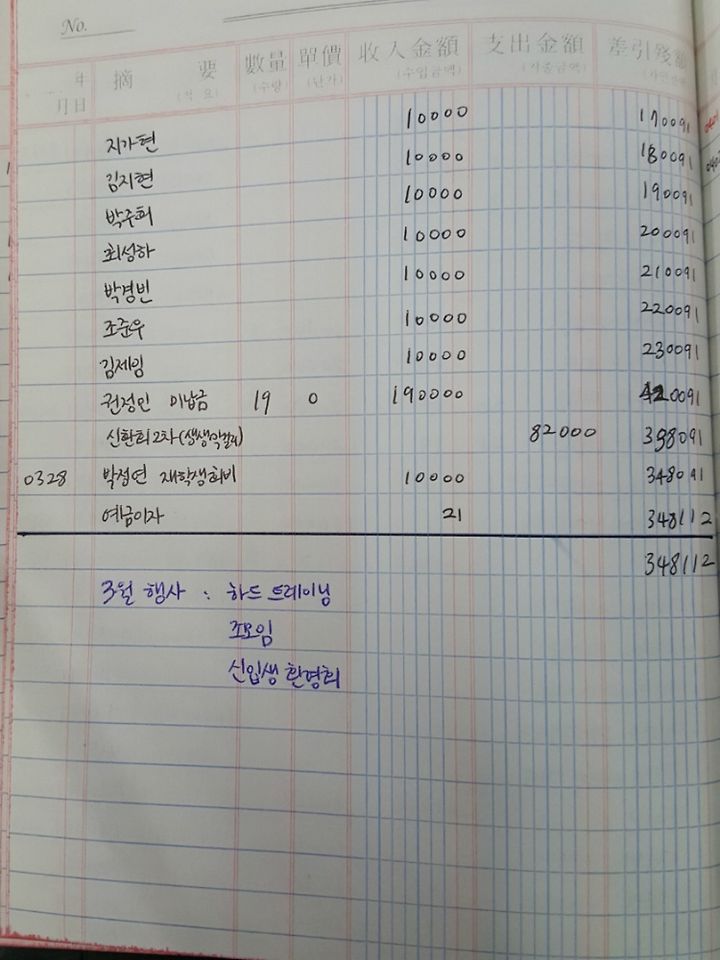 No.
年 摘 要 數量 單價 收入金額 支出金額 差引殘額
月日 (적 요) (수량) (단가) (수입금액) (지출금액)
지가현 10000 170091
김지현 10000 180091
박주희 10000 190091
최성하 10000 200091
박경빈 10000 210091
조준우 10000 220091
김제임 10000 230091
권정인 미납금 19 0 190000 420091
신환회 2차(생생막걸리) 82000 338091
0328 박정연 재학생회비 10000 348091
예금이자 21 348112
348112
3월 행사 : 하드 트레이닝
조모임
신입생 환영회